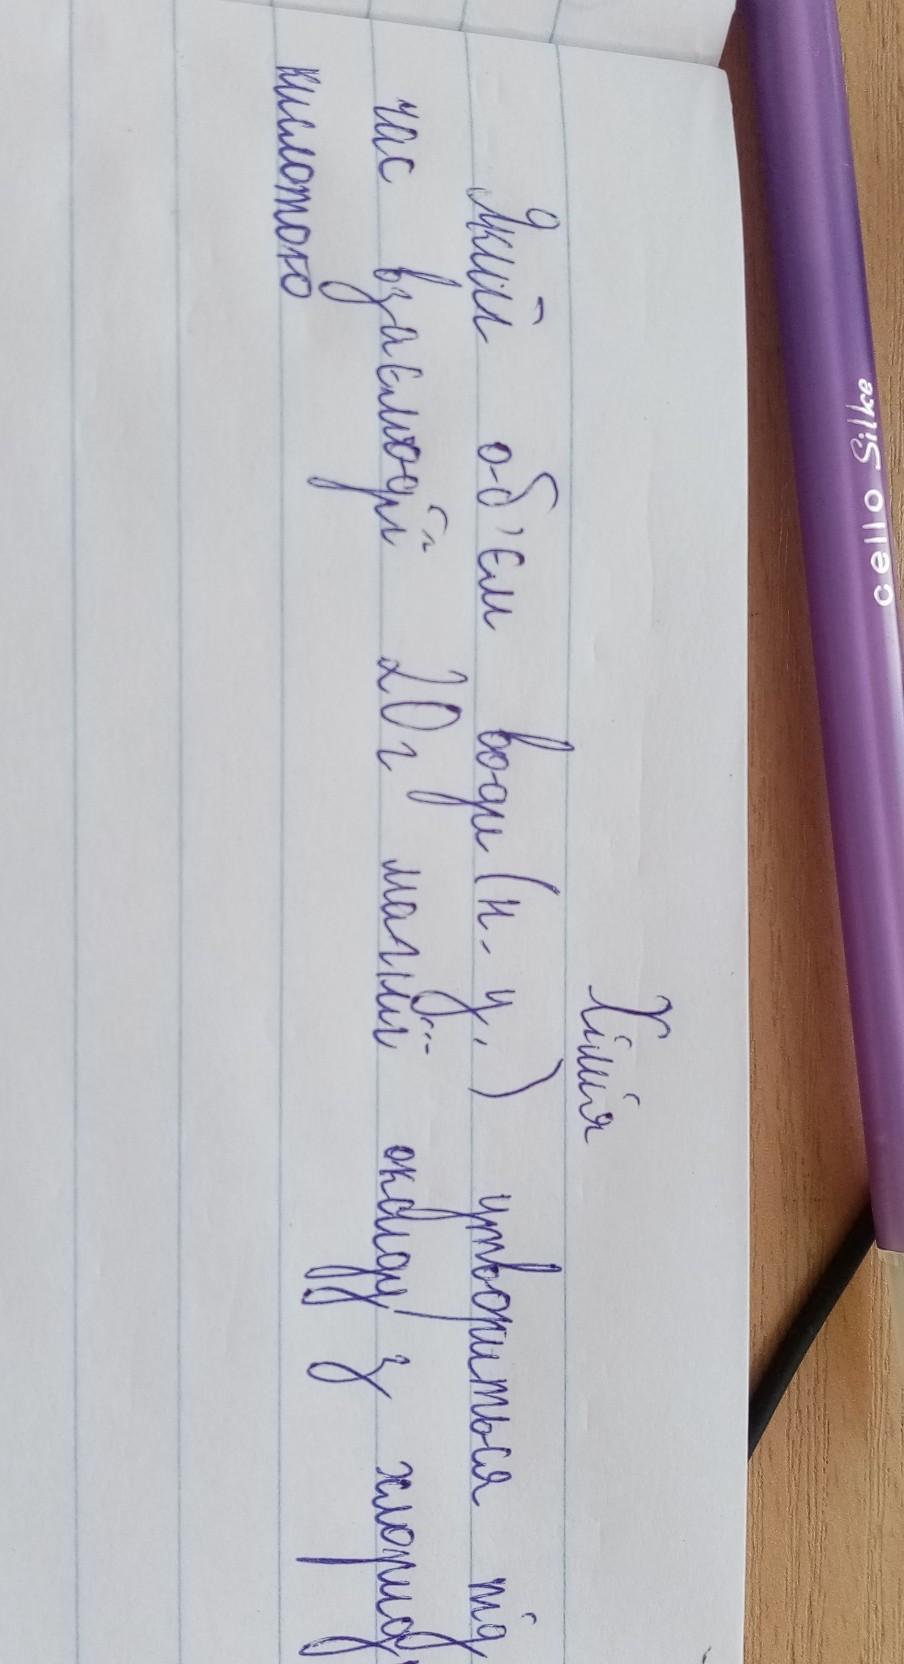 Хімія
Який об'єм води (н. у.) утвориться під
час взаємодії 20г магнії оксиду з хлорид
кислотою
cello Silke